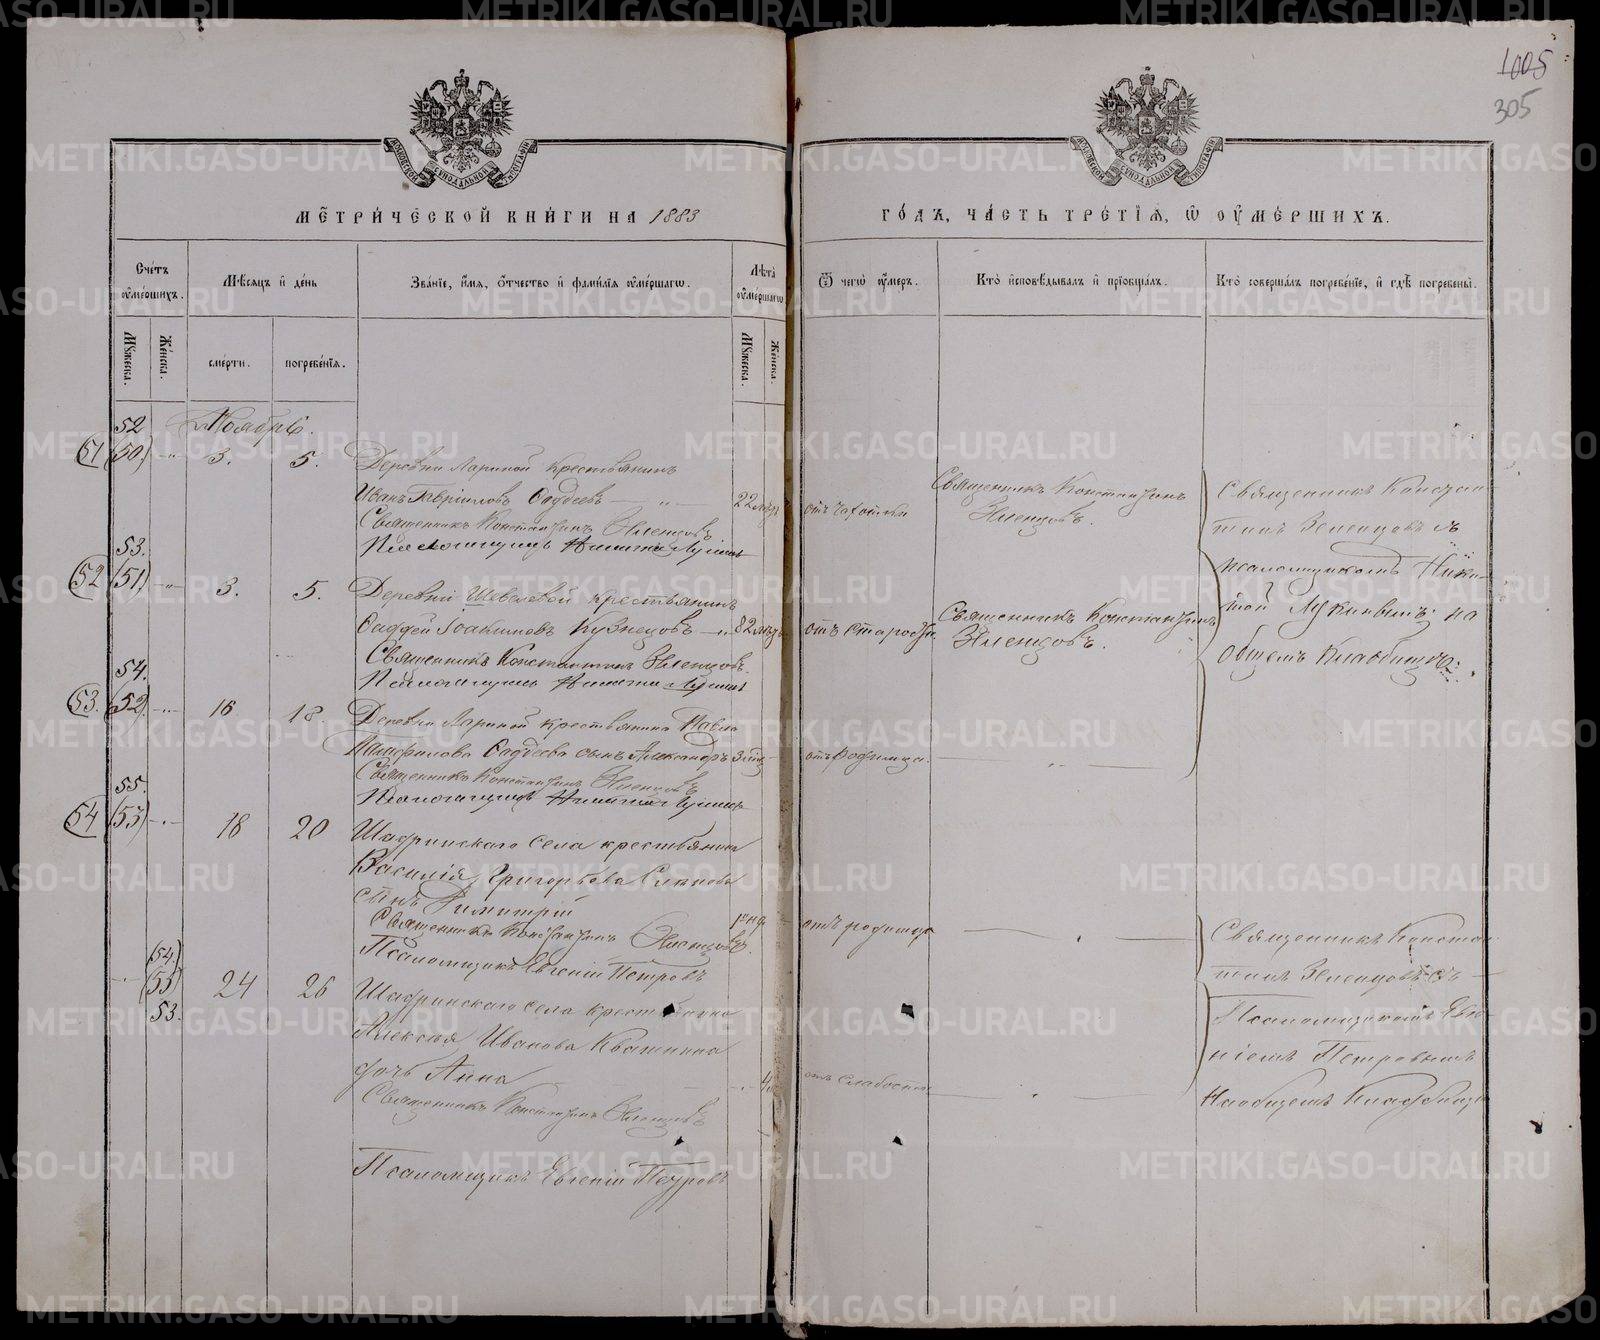 1005
305
МЕТРИЧЕСКОЙ КНИГИ НА 1883
ГОДЪ, ЧАСТЬ ТРЕТІЯ, Ѡ ОУМЕРШИХЪ.
Счетъ оумершихъ.
Мѣсяцъ и день
Званіе, имя, отчество и фамилія оумершагѡ.
Лѣта оумершагѡ
Ѿ чегѡ оумеръ.
Кто исповѣдывалъ и пріобщалъ.
Кто совершалъ погребеніе, и гдѣ погребены.
Мужеска.
Женска.
смерти.
погребенія.
Мужеска.
Женска.
52 Ноябрь.
51 (50) „ 3. 5. Деревни Лариной крестьянинъ
Иванъ Гавріиловъ Фаддеевъ „ 22 отъ чахотки
Священникъ Константинъ Зеленцовъ.
Священникъ Константинъ Зеленцовъ
Псаломщикъ Никита Лукинъ
Священникъ Констан-
тинъ Зеленцовъ съ
псаломщикомъ Ники-
той Лукинымъ на
общемъ кладбищѣ.
53.
52 (51) „ 3. 5. Деревни Шевелевой крестьянинъ
Фаддей Іоакимовъ Кузнецовъ 82 отъ старости
Священникъ Константинъ Зеленцовъ.
Священникъ Константинъ Зеленцовъ
Псаломщикъ Никита Лукинъ
54.
53. (52) „ 16 18. Деревни Лариной крестьянина Павла
Памфилова Фаддеева сынъ Александръ 3 отъ родимца.
Священникъ Константинъ Зеленцовъ
Псаломщикъ Никита Лукинъ
55.
54 (53) 18 20 Шадринскаго села крестьянина
Василія Григорьева
сынъ Димитрій
1 нд отъ родимца
Священникъ Константинъ Зеленцовъ.
Псаломщикъ Евгеній Петровъ
Священникъ Констан-
тинъ Зеленцовъ съ
Псаломщикомъ Евге-
ніемъ Петровымъ
На общемъ кладбищѣ
(54.)
(55) 24 26 Шадринскаго села крестьянина
53. Алексѣя Иванова Квашнина
дочь Анна 4 отъ слабости
Священникъ Константинъ Зеленцовъ
Псаломщикъ Евгеній Петровъ
METRIKI.GASO-URAL.RU